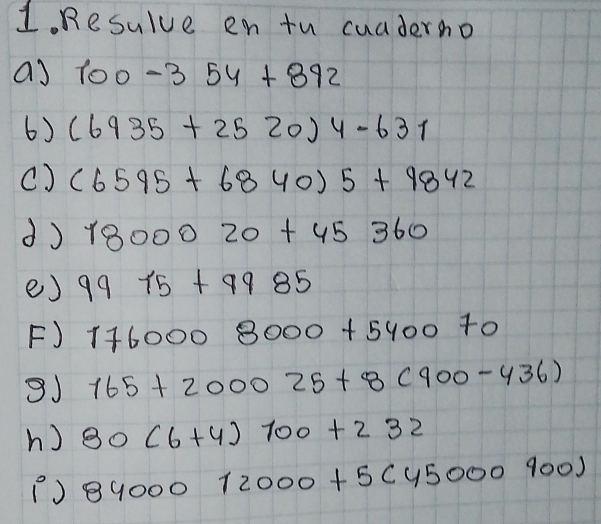 1. Resulve en tu cuaderno
a) 100 - 3 54 + 892
b) (6935 + 25 20) 4 - 631
c) (6595 + 68 40) 5 + 9842
d) 18000 20 + 45 360
e) 99 15 + 99 85
F) 176000 8000 + 5400 70
g) 165 + 2000 25 + 8 (900 - 436)
h) 80 (6+4) 100 + 2 32
i) 84000 12000 + 5 (45000 900)